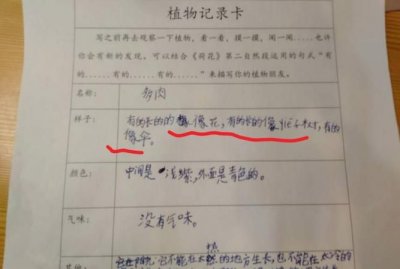 植物记录卡
写之前再去观察一下植物，看一看，摸一摸，闻一闻……也许
你会有新的发现。可以结合《荷花》第二自然段运用的句式“有
的……有的……有的……”来描写你的植物朋友。
名称： 多肉
样子： 有的长的像花，有的长的像 ，有的
像伞。
颜色： 中间是浅紫，外面是青色的。
气味： 没有气味。
热
它不能在太 的地方生长，也不能在太冷的
其他：